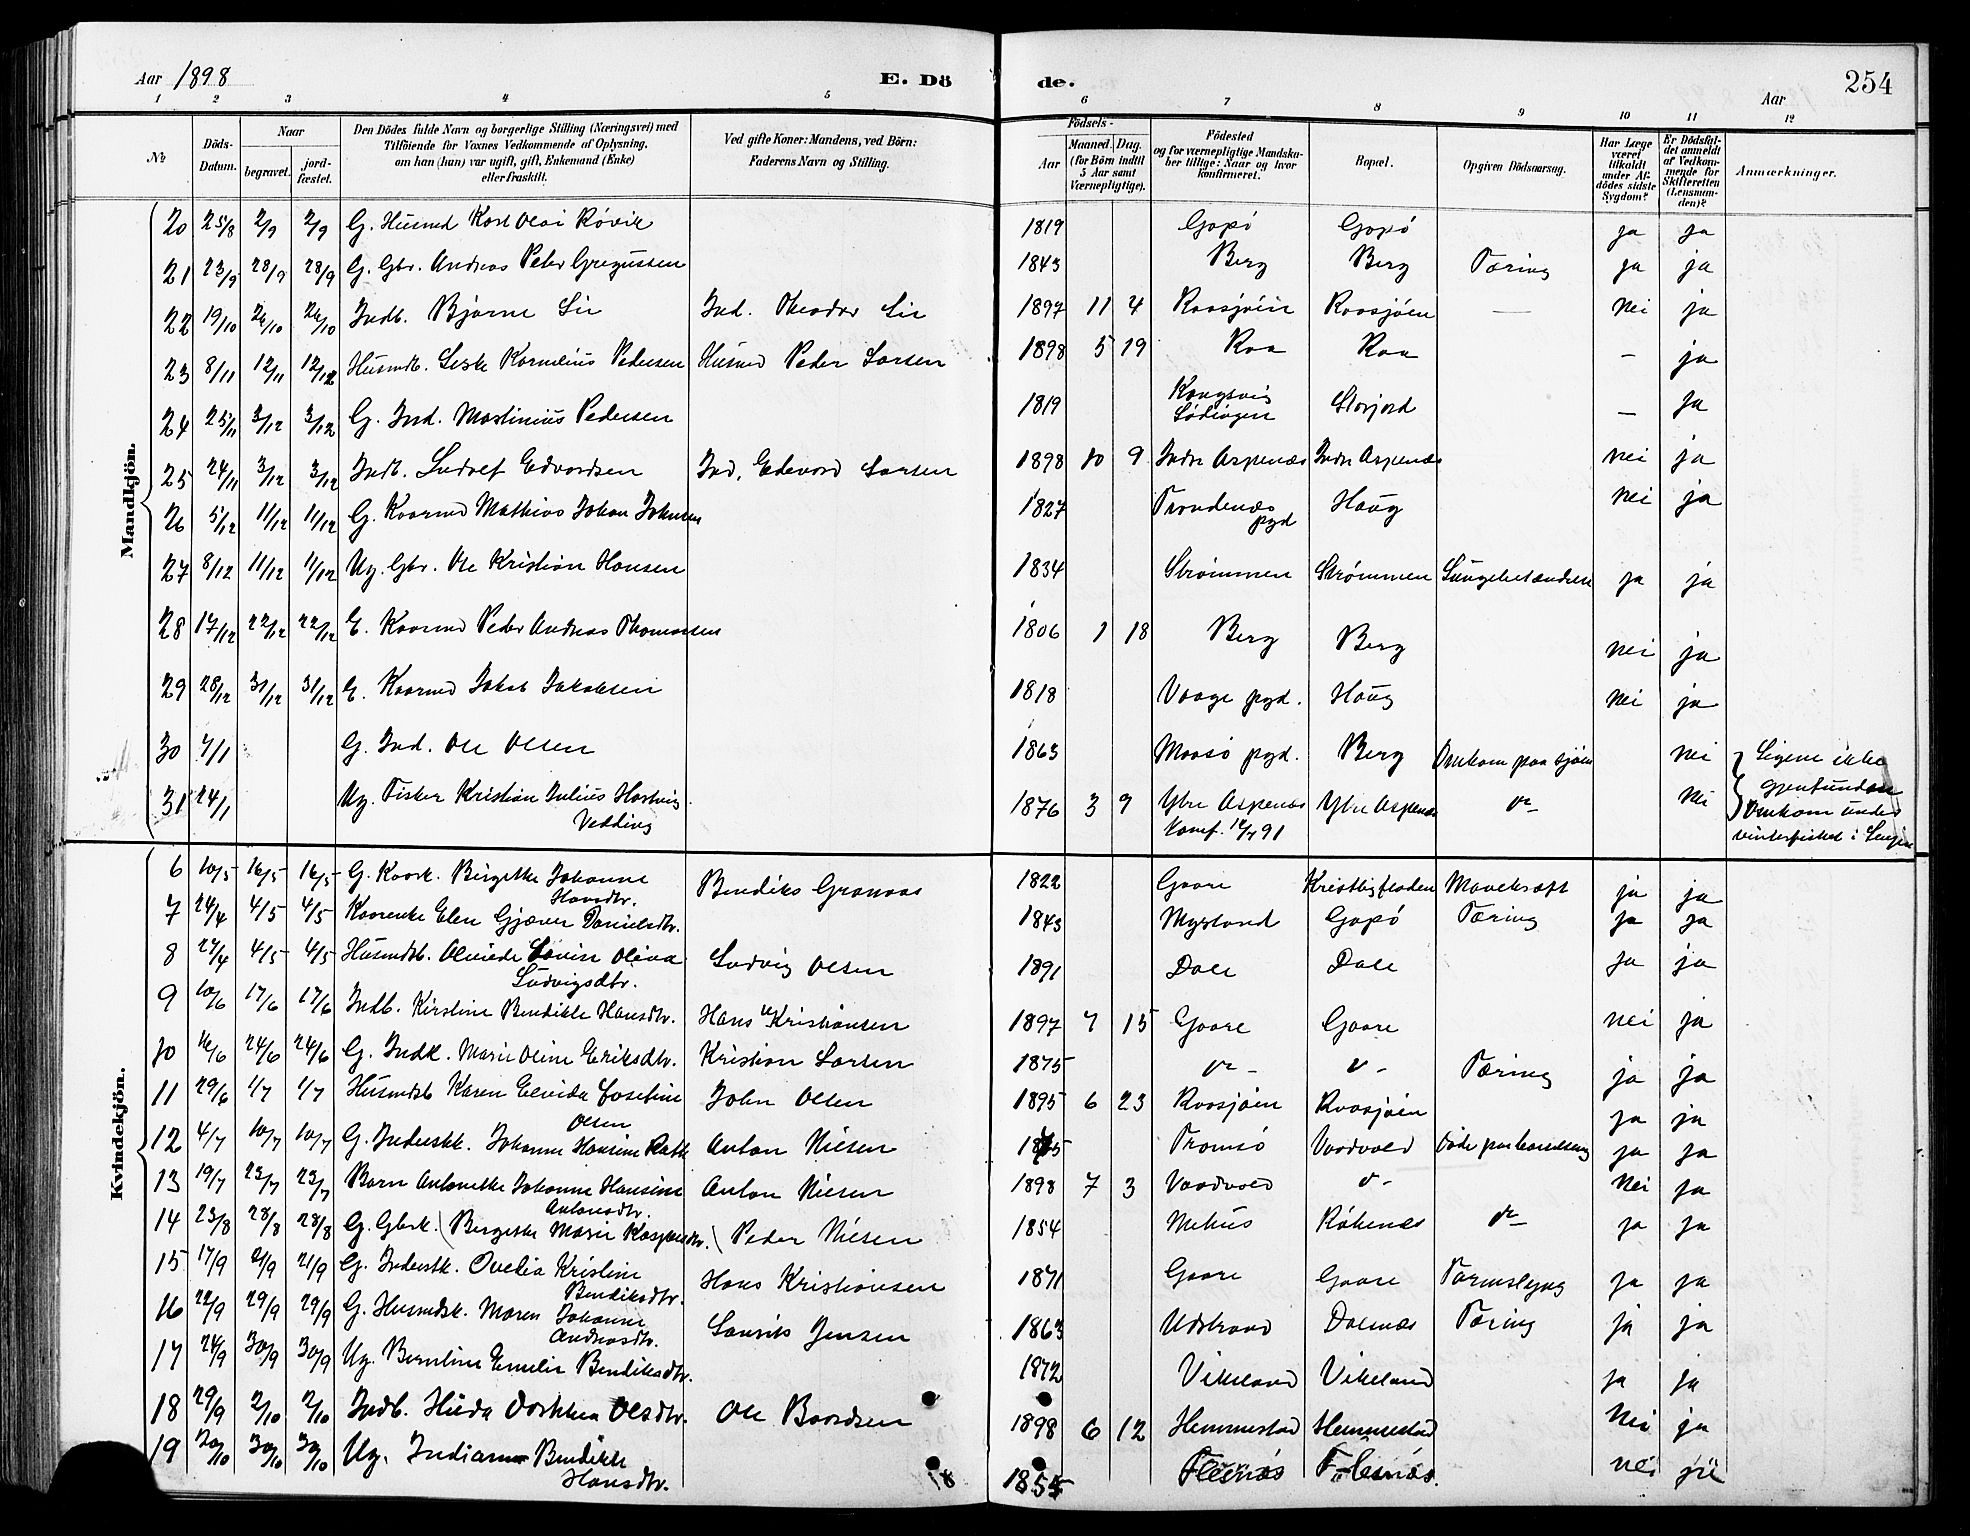 Aar 1898 E. Dö de. 254
Aar
1 2 3 4 5 6 7 8 9 10 11 12
Mandkjön.
Kvindekjön.
No
Döds-Datum.
Naar begravet. jord-fæstet.
Den Dödes fulde Navn og borgerlige Stilling (Næringsvei) med
Tilföiende for Voxnes Vedkommende af Oplysning,
om han (hun) var ugift, gift, Enkemand (Enke)
eller fraskilt.
Ved gifte Koner: Mandens, ved Börn:
Faderens Navn og Stilling.
Födsels-
Aar Maaned. Dag.
(for Börn indtil
5 Aar samt
Værnepligtige).
Födested
og for værnepligtige Mandska-
ber tillige: Naar og hvor
konfirmeret.
Bopæl.
Opgiven Dödsaarsag.
Har Læge
været
tilkaldt
under Af-
dödes sidste
Sygdom?
Er Dödsfal-
det anmeldt
af Vedkom-
mende for
Skifteretten
(Lensman-
den)?
Anmærkninger.
20 25/8 2/9 2/9 G. Husmd Kort Olai Rövik 1819 Gapö Gapö ja ja
21 23/9 28/9 28/9 G. Gbr. Andreas Peter Gregussen 1843 Berg Berg Tæring ja ja
22 19/10 26/10 26/10 Indb. Bjarne Lie Ind. Theodor Lie 1897 11 4 Raasjøen Raasjøen — nei ja
23 8/11 12/11 12/12 Husmdb. Kornelius Pedersen Husmd Peder Larsen 1898 5 19 Raa Raa – ja
24 25/11 3/12 3/12 G. Ind. Martinius Pedersen 1819 Kongsvig Lødingen Storjord – ja
25 24/11 3/12 3/12 Indb. Ludolf Edvardsen Ind. Edevard Larsen 1898 10 9 Indre Aspenæs Indre Aspenæs nei ja
26 5/12 11/12 11/12 G. Kaarmd Mathias Johan Johnsen 1827 Trondenæs pgd Haug nei ja
27 8/12 11/12 11/12 Ug. Gbr. Ole Kristian Hansen 1834 Strømmen Strømmen Lungebetændelse ja ja
28 17/12 22/12 22/12 E. Kaarmd Peder Andreas Thomassen 1806 1 18 Berg Berg nei ja
29 28/12 31/12 31/12 E. Kaarmd Jakob Jakobsen 1818 Vaage pgd. Haug nei ja
30 7/1 G. Ind. Ole Olsen 1863 Maasö pgd. Berg Omkom paa sjøen nei Ligene ikke
31 24/1 Ug. Fisker Kristian Julius Hartvig Vedding 1876 3 9 Ytre Aspenæs Ytre Aspenæs do nei gjenfundne
Konf. 12/7 91 Omkom under
vinterfisket i Senjen
6 10/5 16/5 16/5 G. Kaark. Birgitte Johanne Hansdtr. Bendiks Granaas 1822 Gaare Kristligfjorden Mavekræft ja ja
7 24/4 4/5 4/5 Kaarenke Elen Gjæver Danielsdtr. 1843 Myrland Gapö Tæring ja ja
8 27/4 4/5 4/5 Husmdsb. Lovise Oliva Ludvigsdtr. Ludvig Olsen 1891 Dale Dale ja ja
9 10/6 17/6 17/6 Indb. Kirstine Bendikte Hansdtr. Hans Kristiansen 1897 7 15 Gaare Gaare nei ja
10 16/6 24/6 24/6 G. Indk. Marie Oline Eriksdtr. Kristian Larsen 1875 do – do – Tæring ja ja
11 29/6 1/7 1/7 Husmdsb Karen Elvida Josefine Olsen John Olsen 1895 6 23 Raasjøen Raasjøen ja ja
12 4/7 10/7 10/7 G. Inderstk. Johanne Hansine Rath Anton Nilsen Tromsö Vaadvold Døde paa barselseng ja ja
13 19/7 23/7 23/7 Barn Antonette Johanne Hansine Antonsdtr. Anton Nilsen 1898 7 3 Vaadvold do – nei ja
14 23/8 28/8 28/8 G. Gbrk. (Bergitte Marie Kaspersdtr.) Peder Nilsen 1854 Mehus Røkenæs do ja ja
15 17/9 21/9 21/9 G. Inderstk. Ovedia Kristine Bendiksdtr. Hans Kristiansen 1871 Gaare Gaare ja ja
16 22/9 29/9 29/9 G. Husmdsk. Maren Johanne Andreasdtr. Laurits Jensen 1863 Udstrand Dalenæs Tæring ja ja
17 24/9 30/9 30/9 Ug. Berntine Emelie Bendiksdtr. 1872 Vikeland Vikeland ja ja
18 29/9 2/10 2/10 Indb. Hilda Dorthea Olsdtr. Ole Baardsen 1898 6 12 Hemmestad Hemmestad nei ja
19 20/10 30/10 30/10 Ug. Indiane Bendikte Hansdtr. 18 1855 Flesnæs Flesnæs. nei ja